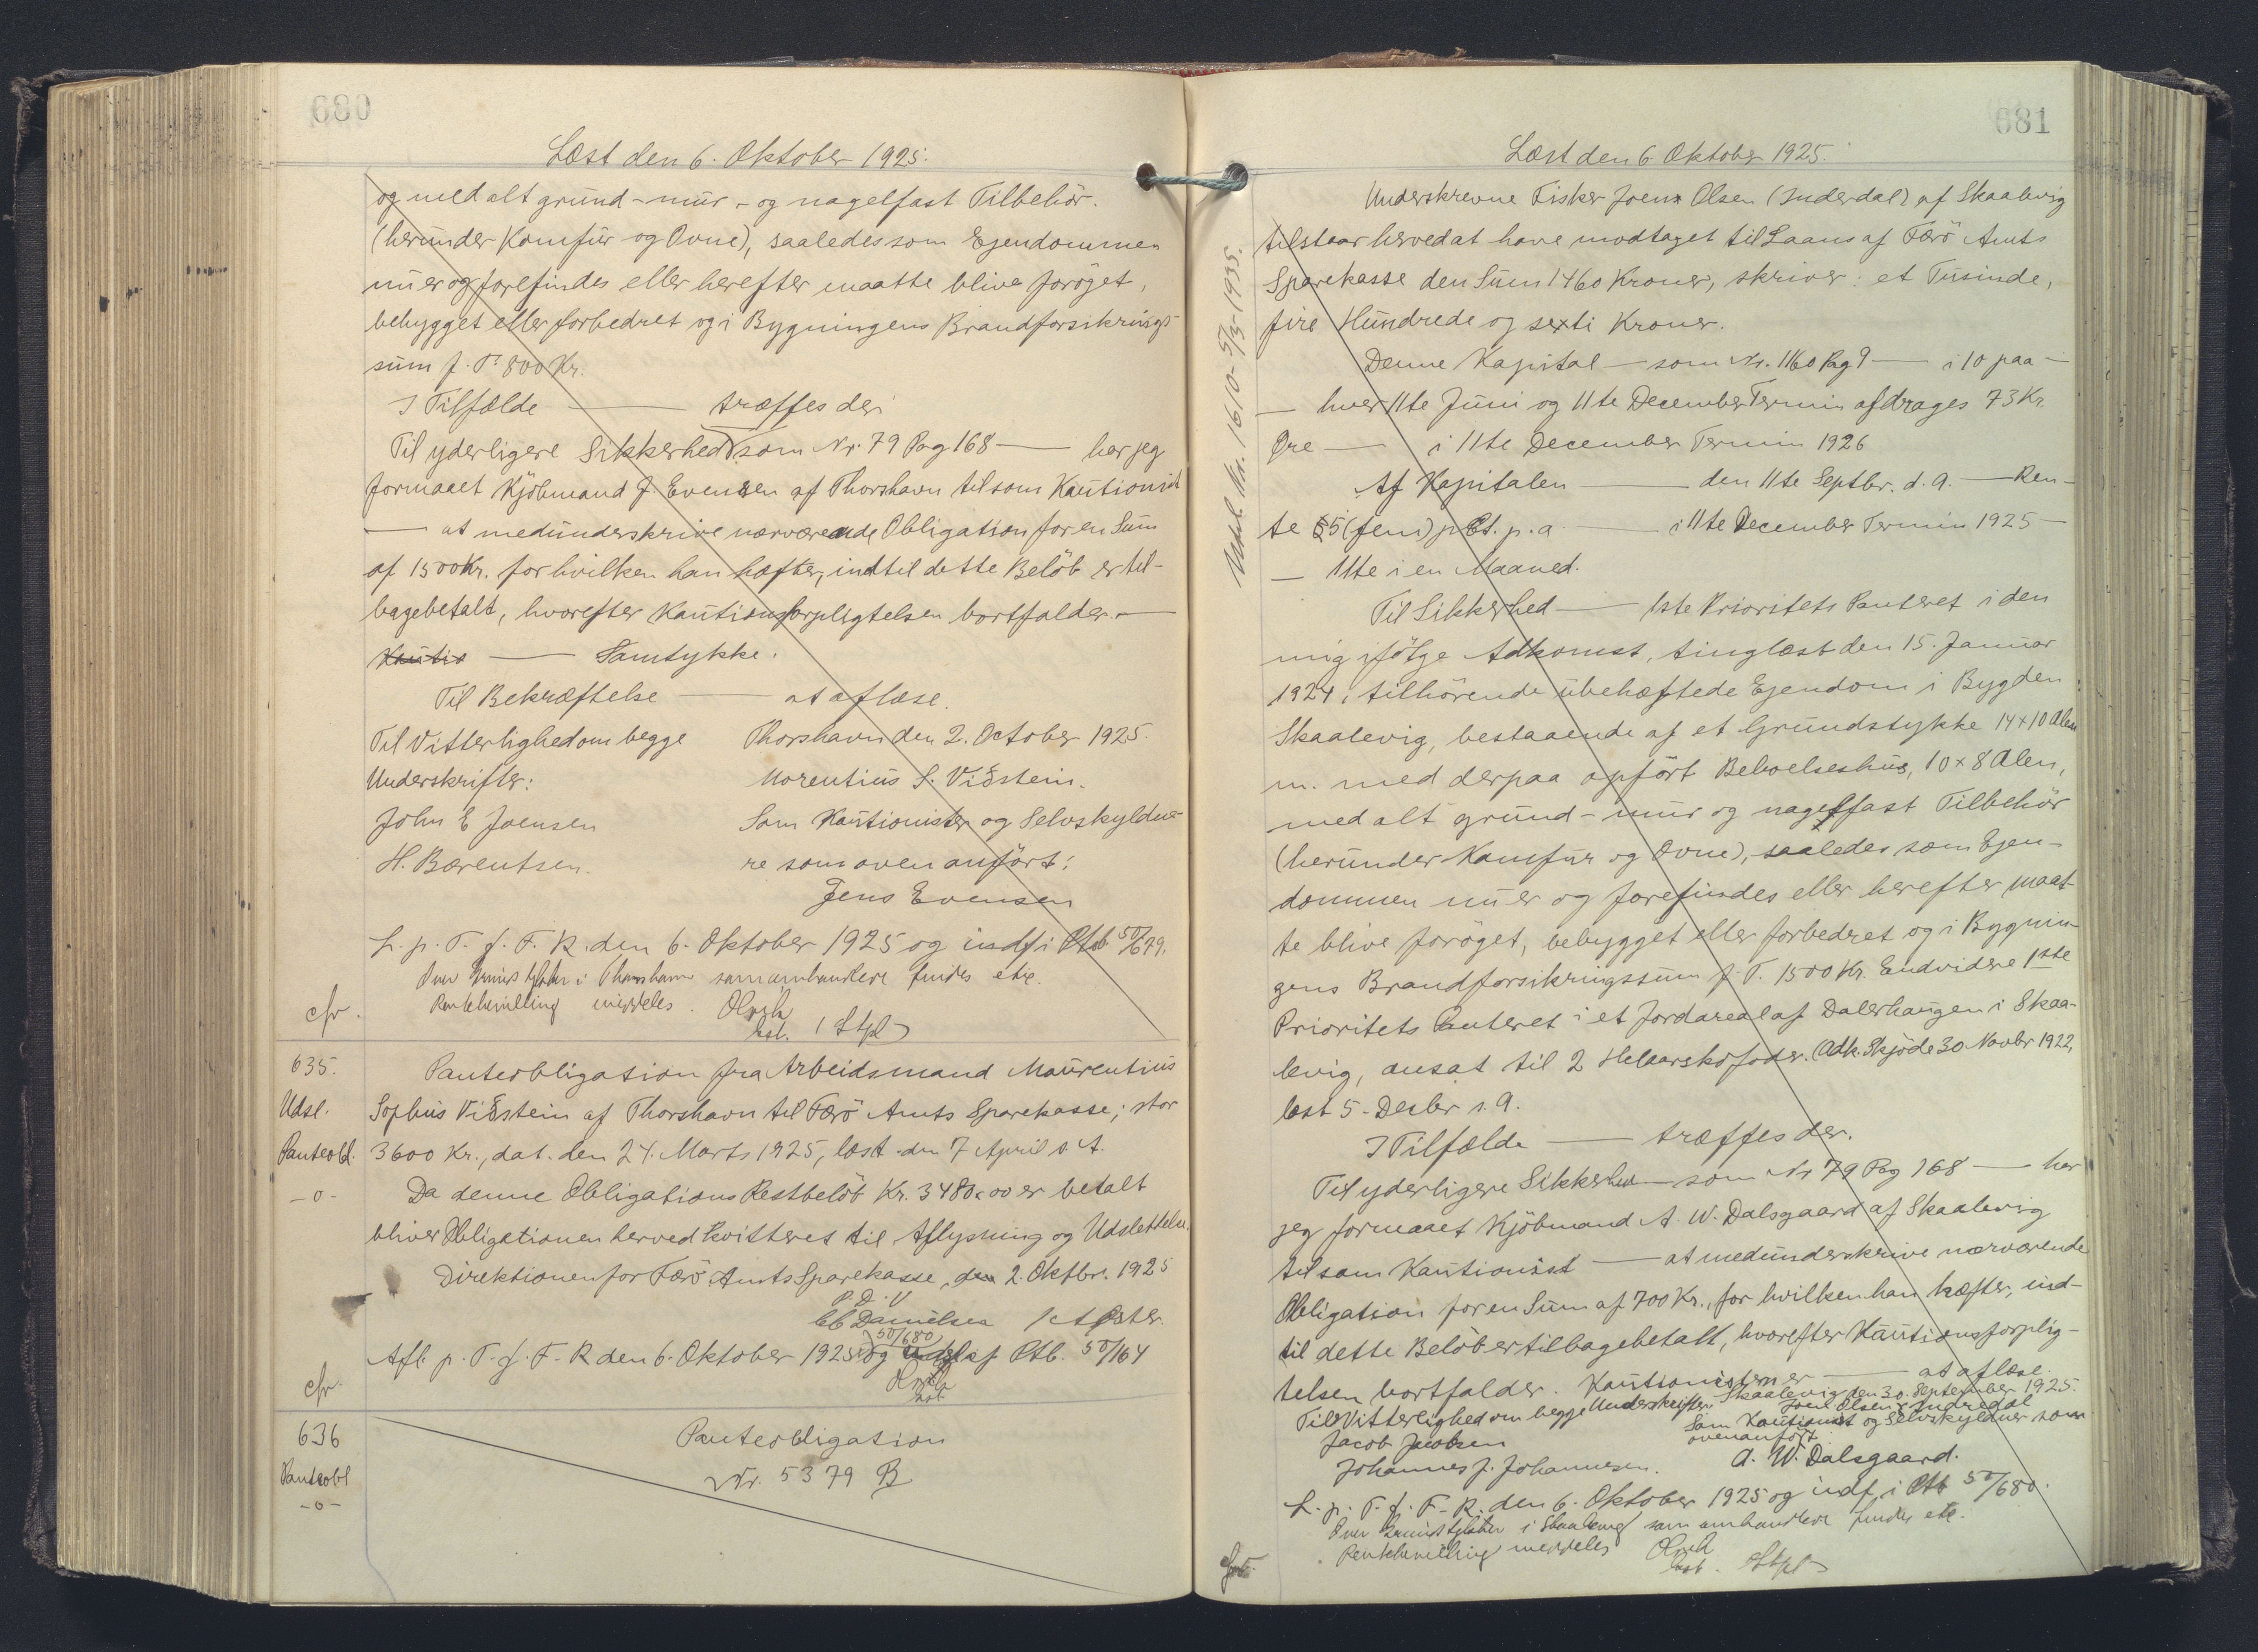 680
Læst den 6. Oktober 1925.
og med alt grund- mur- og nagelfast Tilbehör.
(herunder Komfür og Ovne), saaledes som Ejendommen
nu er og forefindes eller herefter maatte blive foröget,
bebygget eller forbedret og i Bygningens Brandforsikrings-
sum f. T. 800 Kr.
I Tilfælde — træffes der
Til yderligere Sikkerhed som Nr. 79 Pag 168 — har jeg
formaaet Kjöbmand J. Evensen af Thorshavn til som Kautionist
— at medunderskrive nærværende Obligation for en Sum
af 1500 Kr. for hvilken han hæfter, indtil dette Belöb er til-
bagebetalt, hvorefter Kautionsforpligtelsen bortfalder. —
Kautio — Samtykke.
Til Bekræftelse — at aflæse.
Til Vitterlighed om begge Thorshavn den 2. October 1925.
Underskrifter: Morentius S. Viðstein.
John E Joensen Som Kautionister og Selvskyldne-
H. Bærentsen. re som oven anfört:
Jens Evensen
L. p. T. f. F. R. den 6. Oktober 1925 og indf i Ptb 50/679.
i Thorshavn som omhandlere findes etc.
meddeles.
cfr.
635. Panteobligation fra Arbeidsmand Maurentius
Udsl. Sophus Viðstein af Thorshavn til Færö Amts Sparekasse; stor
Panteobl. 3600 Kr., dat. den 24. Marts 1925, læst den 7 April s. A.
-o- Da denne Obligations Restbelöb Kr. 3480,00 er betalt
bliver Obligationen herved kvitteret til Aflysning og Udslettelse.
Direktionen for Færö Amts Sparekasse, den 2. Oktbr. 1925
P. D. V
Danielsen
50/680
Afl. p. T. f. F. R den 6. Oktober 1925 og udsl af Ptb. 50/164
cfr.
636 Panteobligation
Panteobl Nr. 5379 B
-o-
681
Læst den 6 Oktober 1925.
Udsl. Nr. 1610 - 5/3-1935.
Underskrevne Fisker Joen Olsen (Inderdal) af Skaalevig
tilstaar herved at have modtaget til Laans af Færö Amts
Sparekasse den Sum 1460 Kroner, skriver: et Tusinde,
fire Hundrede og sexti Kroner.
Denne Kapital — som Nr. 1160 Pag 9 — i 10 paa —
— hver 11te Juni og 11te December Termin afdrages 73 Kr.
Øre — i 11te December Termin 1926
Af Kapitalen — den 11te Septbr. d. A. — Ren-
te 5 (fem) pCt. p. a — i 11te December Termin 1925 —
— 11te i en Maaned.
Til Sikkerhed — 1ste Prioritets Panteret i den
mig ifölge Adkomst, tinglæst den 15. Januar
1924, tilhörende ubehæftede Ejendom i Bygden
Skaalevig, bestaaende af et Grundstykke 14 x 10 Alen
m. med derpaa opfört Beboelseshus, 10 x 8 Alen,
med alt grund- mur og nagelfast Tilbehör
(herunder Komfur og Ovne), saaledes som Ejen-
dommen nu er og forefindes eller herefter maat-
te blive foröget, bebygget eller forbedret og i Bygnin-
gens Brandforsikringssum f. T. 1500 Kr. Endvidere 1ste
Prioritets Panteret i et Jordareal af Dalerhaugen i Skaa-
levig, ansat til 2 Helaarskofoder. (Adk. Skjöde 30 Novbr 1922,
læst 5. Decbr s. A.
I Tilfælde — træffes der.
Til yderligere Sikkerhed — som Nr 79 Pag 168 — har
jeg formaaet Kjöbmand A. W. Dalsgaard af Skaalevig
til som Kautionist — at medunderskrive nærværende
Obligation for en Sum af 700 Kr., for hvilken han hæfter, ind-
til dette Belöb er tilbagebetalt, hvorefter Kautionsforplig-
telsen bortfalder. Kautionisten er — at aflæse.
Til Vitterlighed om begge Underskrifter Skaalevig den 30. September 1925.
Joen Olsen, Indredal
Jacob Jacobsen Som Kautionist og Selvskyldner som
ovenanfört:
Johannes J. Johannesen. A. W. Dalsgaard.
L. p. T. f. F. R. den 6. Oktober 1925 og indf. i Ptb 50/680.
i Skaalevig som omhandlere findes etc.
meddeles